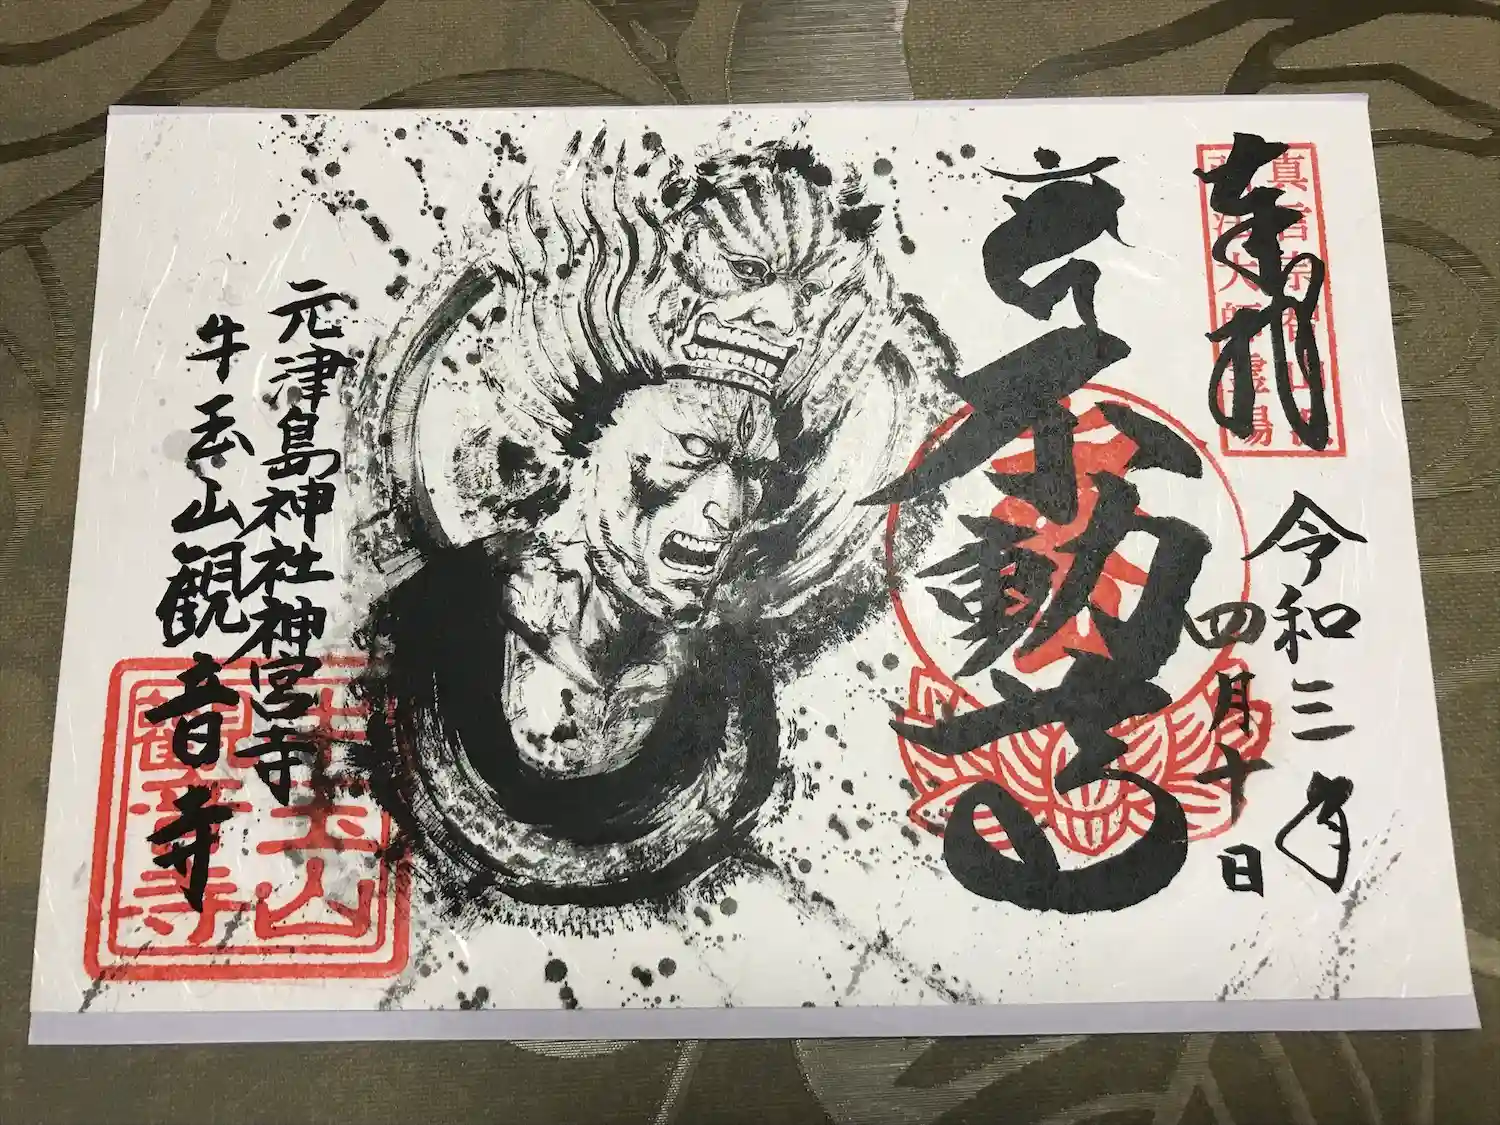 奉拝
真言宗智山派
弘法大師霊場
令和三年
四月十日
不動尊
元津島神社神宮寺
牛玉山観音寺
牛玉山
観音寺